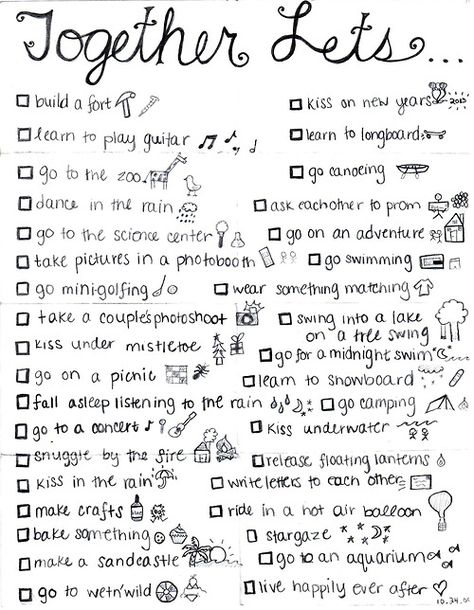 Together Lets...
build a fort
kiss on new years 2013
learn to play guitar
learn to longboard
go to the zoo
go canoeing
dance in the rain
ask eachother to prom
go to the science center
go on an adventure
take pictures in a photobooth
go swimming
go mini-golfing
wear something matching
take a couple's photoshoot
swing into a lake
on a tree swing
kiss under mistletoe
go for a midnight swim
go on a picnic
learn to snowboard
fall asleep listening to the rain
go camping
go to a concert
kiss underwater
snuggle by the fire
release floating lanterns
kiss in the rain
write letters to each other
make crafts
ride in a hot air balloon
bake something
stargaze
make a sandcastle
go to an aquarium
go to wet'n'wild
live happily ever after